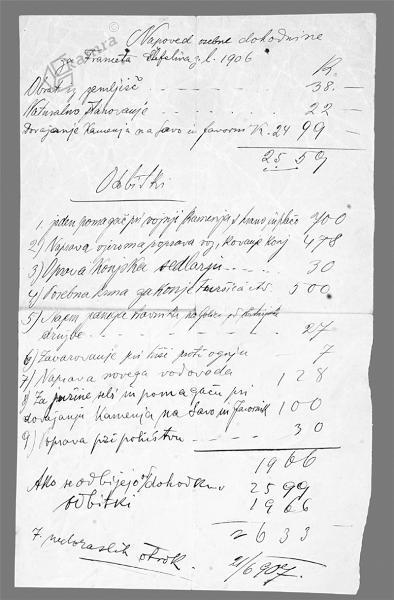 Napoved osebne dohodnine
za Franceta Šifelina z. l. 1906
K.
Obrat iz zemljišč - - - - 38. -
Naturalno stanovanje - - - 22 -
Dovažanje Kamenja na Savo in Javornik K. 24 99 -
25 59
Odbitki
1. jeden pomagač pri vožnji Kamenja s hrano in plačo 700
2) Naprava oziroma poprava voz, kovanje konj 478
3) Oprava Konjska sedlarju - - - - 30
4) Posebna hrana za konje turšica i.t.d. 500
5) Najem
družbe - - - - 27
6) Zavarovanje pri hiši proti ognju - 7
7) Naprava novega vodovoda - 128
8) Za in pomagaču pri
dovažanju Kamenja na Savo in Javornik 100
9) Poprava pri pohištvu - - - - 30
1966
Ako se odbijejo od dohodkov 2599
odbitki 1966
= 633 -
7. nedoraslih otrok. 21/6 907.